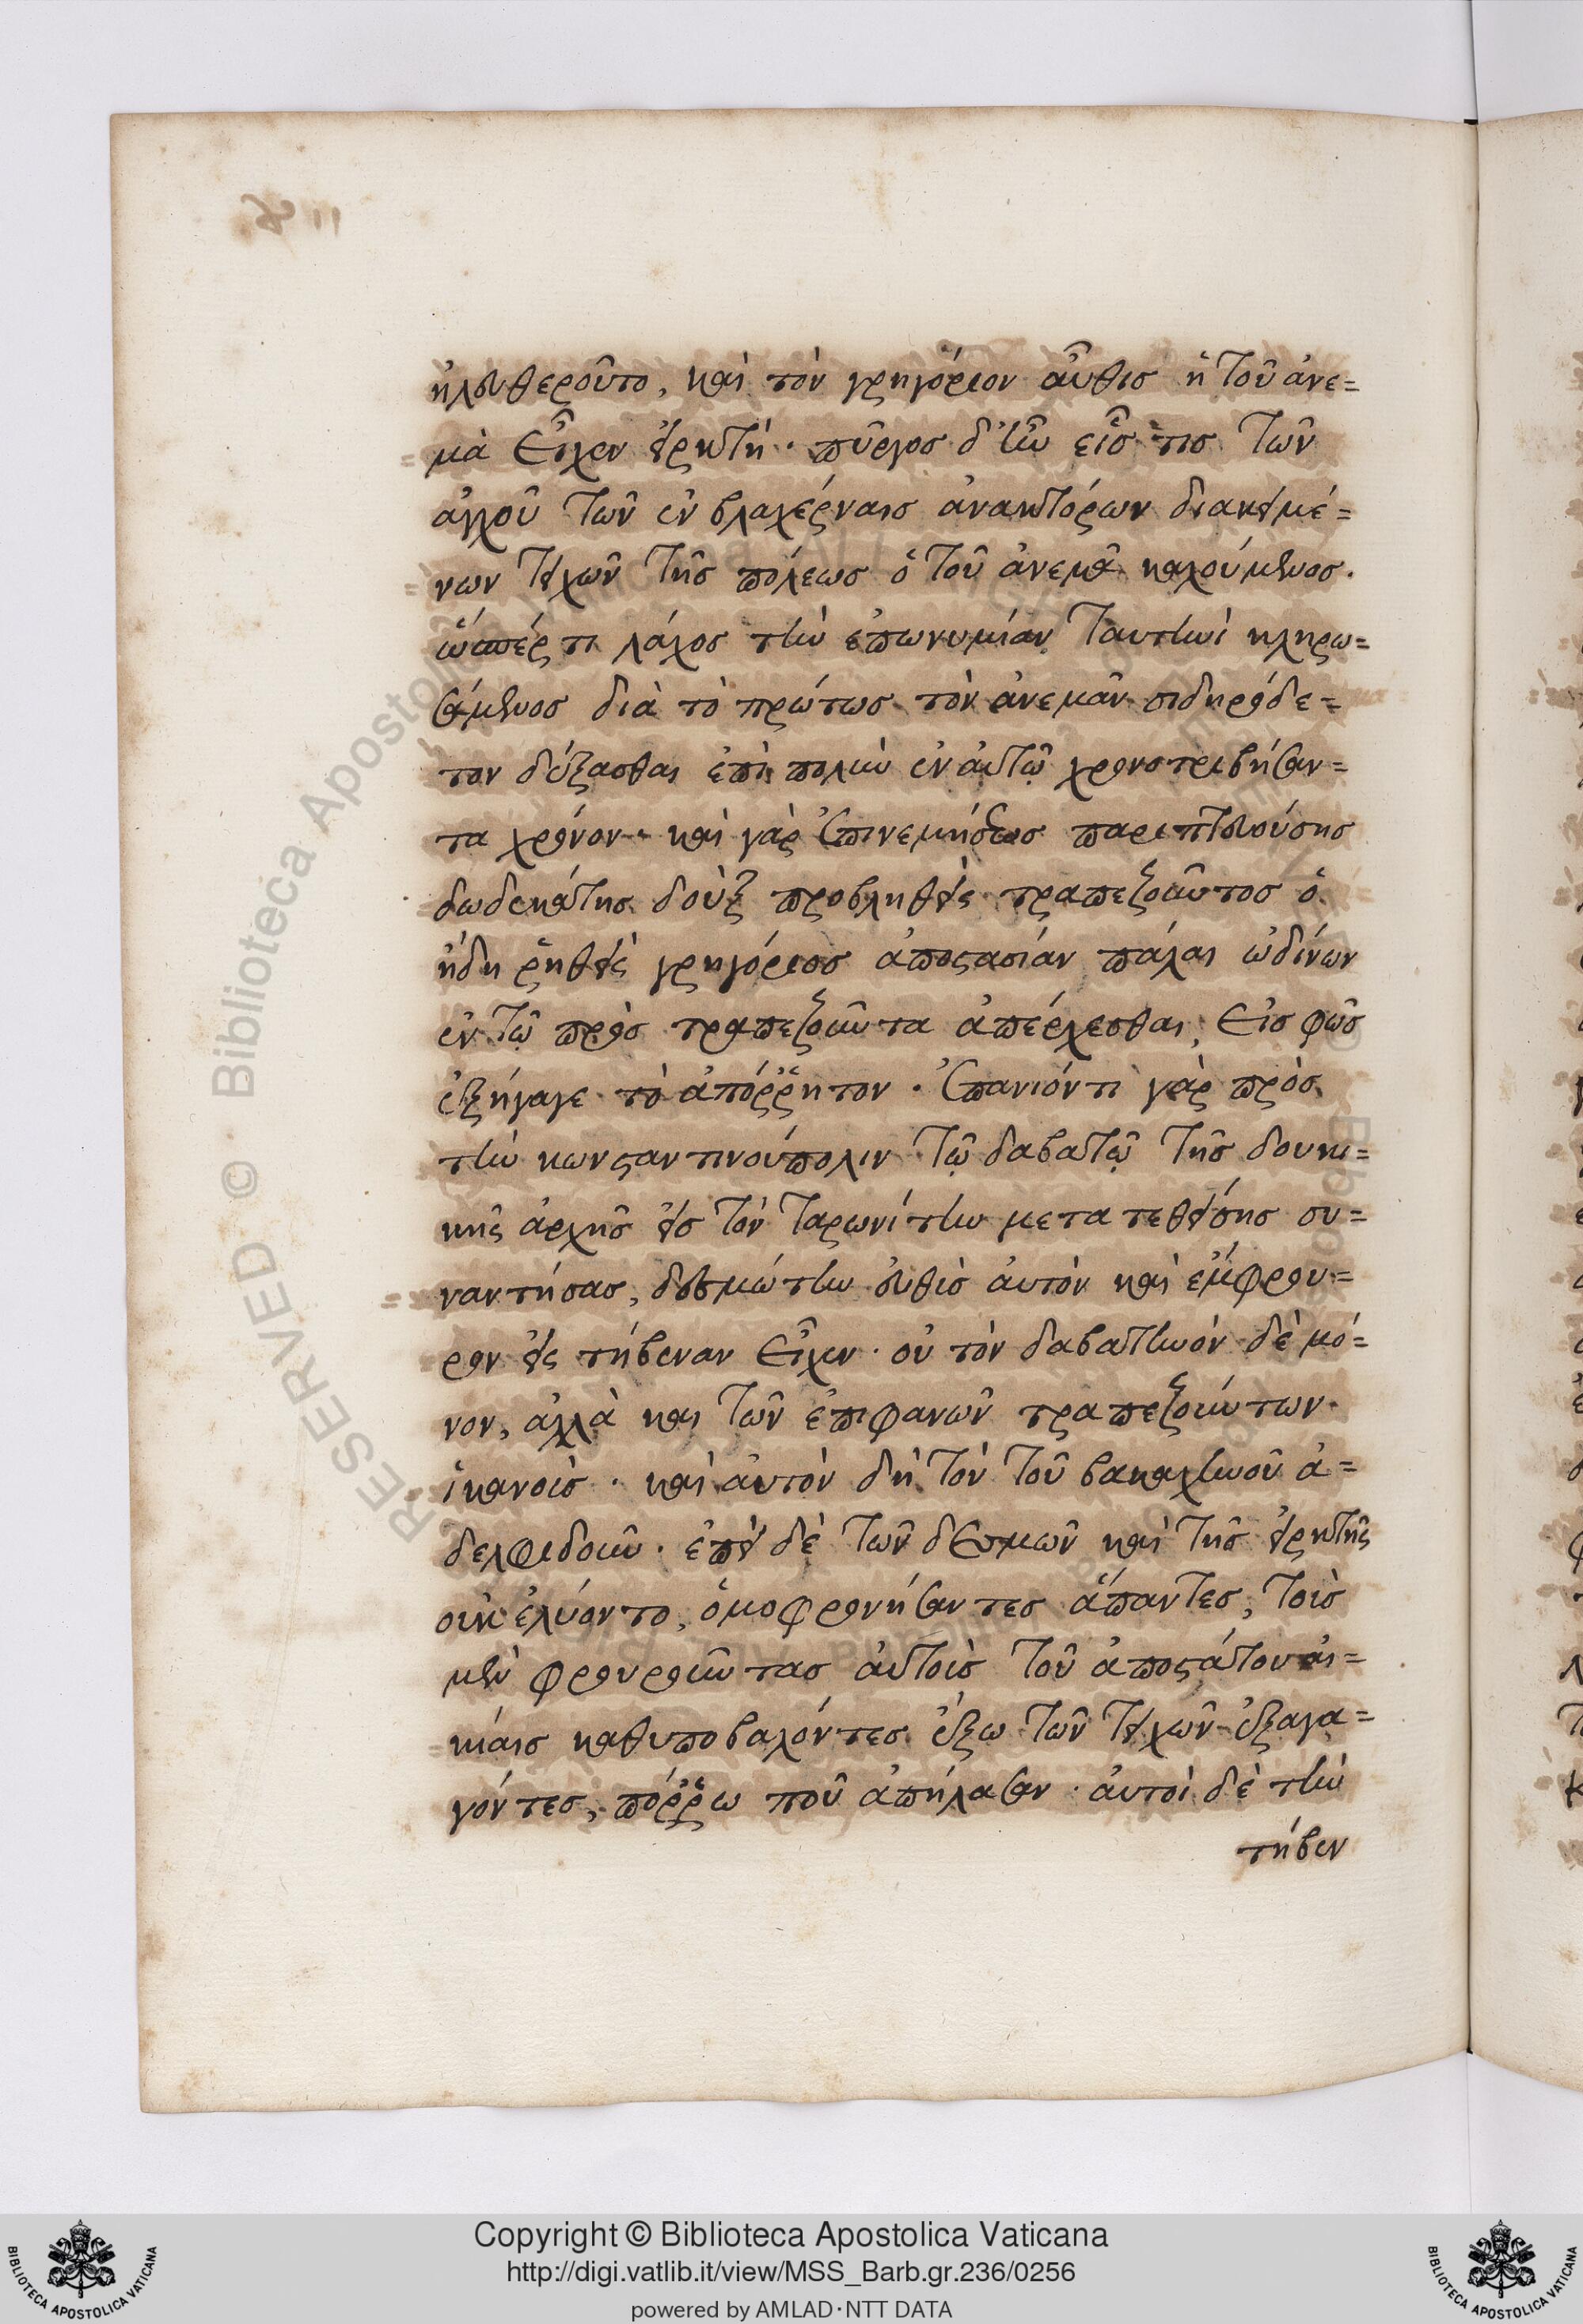 ἠλευθεροῦτο, καὶ τὸν γρηγόριον αὖθις ἡ τοῦ ἀνε=
μὰ εἶχεν εἱρκτή· πύργος δ' ἦν εἷς τις τῶν
ἀγχοῦ τῶν ἐν βλαχέρναις ἀνακτόρων διακειμέ=
νων τειχῶν τῆς πόλεως ὁ τοῦ ἀνεμᾶ καλούμενος.
ὥσπέρ τι λάχος τὴν ἐπωνυμίαν ταυτηνὶ κληρω=
σάμενος διὰ τὸ πρώτως τὸν ἀνεμᾶν σιδηρόδε=
τον δέξασθαι ἐπὶ πολὺν ἐν αὐτῷ χρονοτριβήσαν=
τα χρόνον· καὶ γὰρ ἐπινεμήσεως παριππευούσης
δωδεκάτης δοὺξ προβληθεὶς τραπεζοῦντος ὁ
ἤδη ῥηθεὶς γρηγόριος ἀποστασίαν πάλαι ὠδίνων
ἐν τῷ πρὸς τραπεζοῦντα ἀπέρχεσθαι, εἰς φῶς
ἐξήγαγε τὸ ἀπόῤῥητον· ἐπανιόντι γὰρ πρὸς
τὴν κωνσταντινούπολιν τῷ δαβατῷ τῆς δουκι=
κῆς ἀρχῆς εἰς τὸν ταρωνίτην μετατεθείσης συ=
ναντήσας, δεσμώτην εὐθὺς αὐτὸν καὶ ἔμφρου=
ρον εἰς τήβεναν εἶχεν· οὐ τὸν δαβατηνὸν δὲ μό=
νον, ἀλλὰ καὶ τῶν ἐπιφανῶν τραπεζουντίων
ἱκανοὺς· καὶ αὐτὸν δὴ τὸν τοῦ βακχηνοῦ ἀ=
δελφιδοῦν· ἐπεὶ δὲ τῶν δεσμῶν καὶ τῆς εἱρκτῆς
οὐκ ἐλύοντο, ὁμοφρονήσαντες ἅπαντες, τοὺς
μὲν φρουροῦντας αὐτοὺς τοῦ ἀποστάτου αἰ=
κίαις καθυποβαλόντες ἔξω τῶν τειχῶν ἐξαγα=
γόντες, πόῤῥω ποῦ ἀπήλασαν· αὐτοὶ δὲ τὴν
τήβεν
Copyright © Biblioteca Apostolica Vaticana
http://digi.vatlib.it/view/MSS_Barb.gr.236/0256
powered by AMLAD·NTT DATA